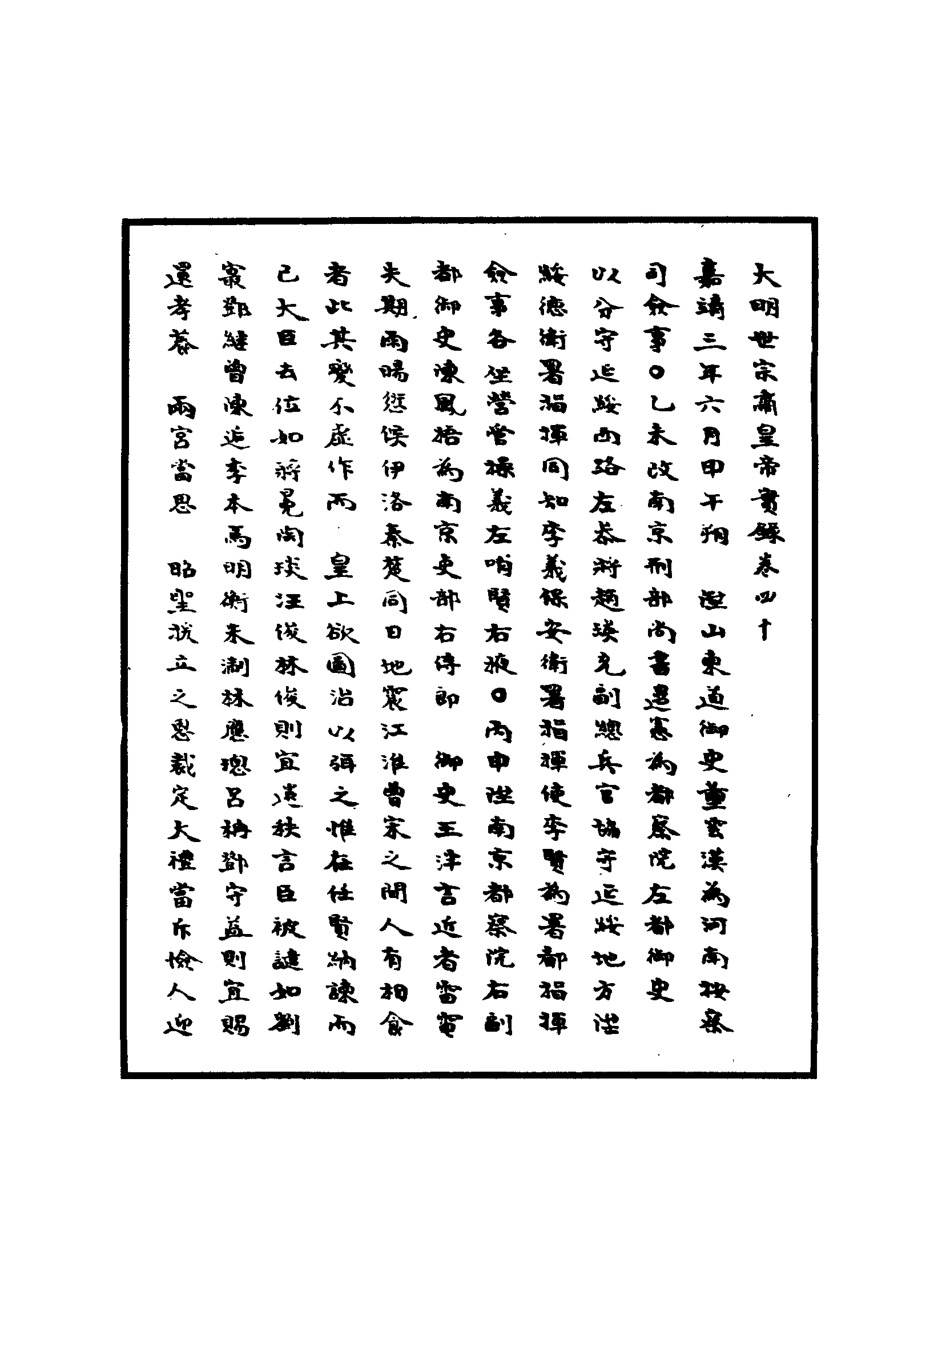 大明世宗肅皇帝實錄卷四十
嘉靖三年六月甲午朔　陞山東道御史董雲漢為河南按察
司僉事○乙未改南京刑部尚書趙鑑為都察院左都御史
以分守延綏西路左叅將趙瑛充副總兵官協守延綏地方陞
綏德衛署指揮同知李義保安衛署指揮使李賢為署都指揮
僉事各坐營管操義左哨賢右掖○丙申陞南京都察院右副
都御史陳鳳梧為南京吏部右侍郎　御史王泮言近者雷電
失期雨暘愆候伊洛秦楚同日地震江淮曹宋之間人有相食
者此其變不虛作而　皇上欲圖治以弭之惟在任賢納諫而
已大臣去位如蔣冕陶琰汪俊林俊則宜進秩言臣被譴如劉
寀鄧繼曾陳逅季本馬明衡朱淛林應璁呂柟鄒守益則宜賜
還孝養　兩宮當思　昭聖援立之恩裁定大禮當斥憸人迎